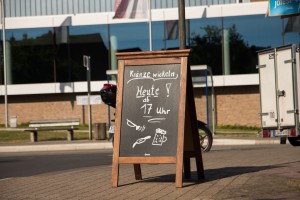 Kränze wickeln
Heute !
ab
17 Uhr